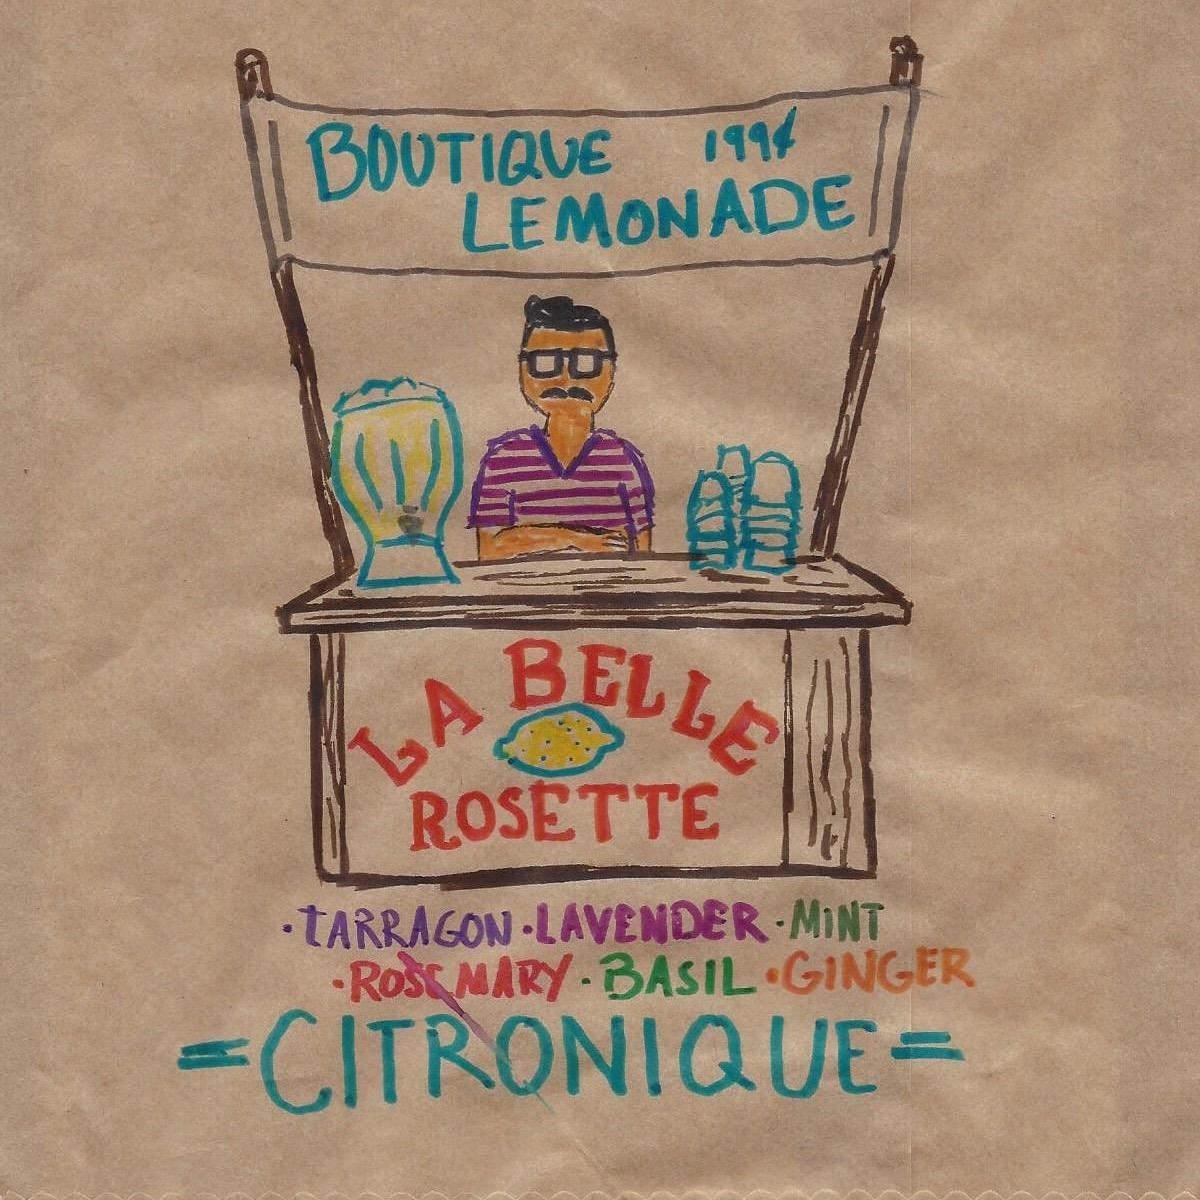 BOUTIQUE 199¢
LEMONADE
LA BELLE
ROSETTE
·TARRAGON·LAVENDER·MINT
·ROSEMARY·BASIL·GINGER
=CITRONIQUE=